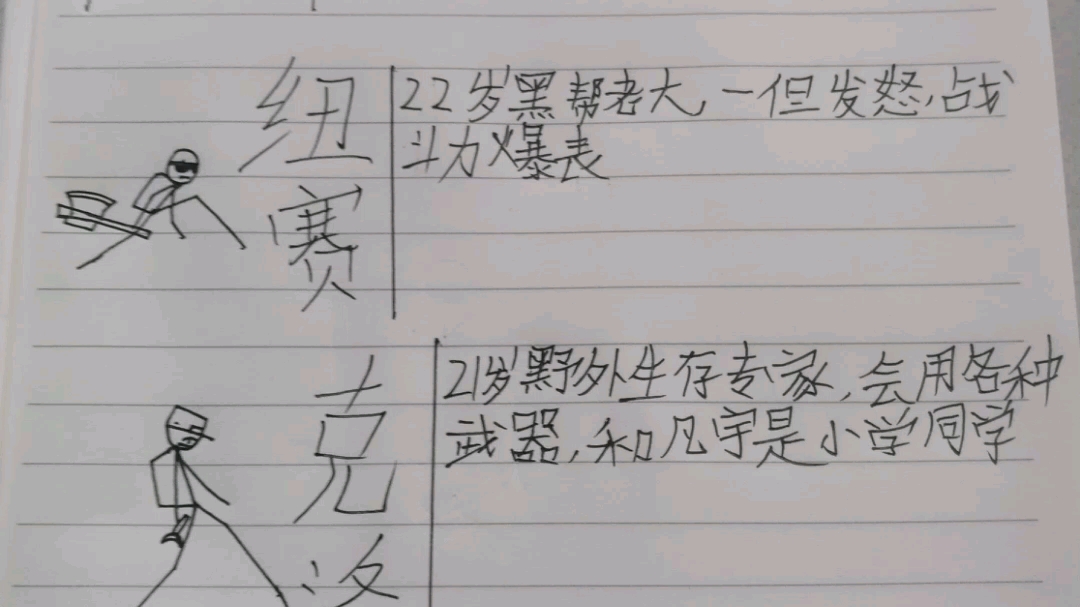 纽赛
22岁黑帮老大,一但发怒,战
斗力爆表
克
21岁野外生存专家,会用各种
武器,和凡宇是小学同学